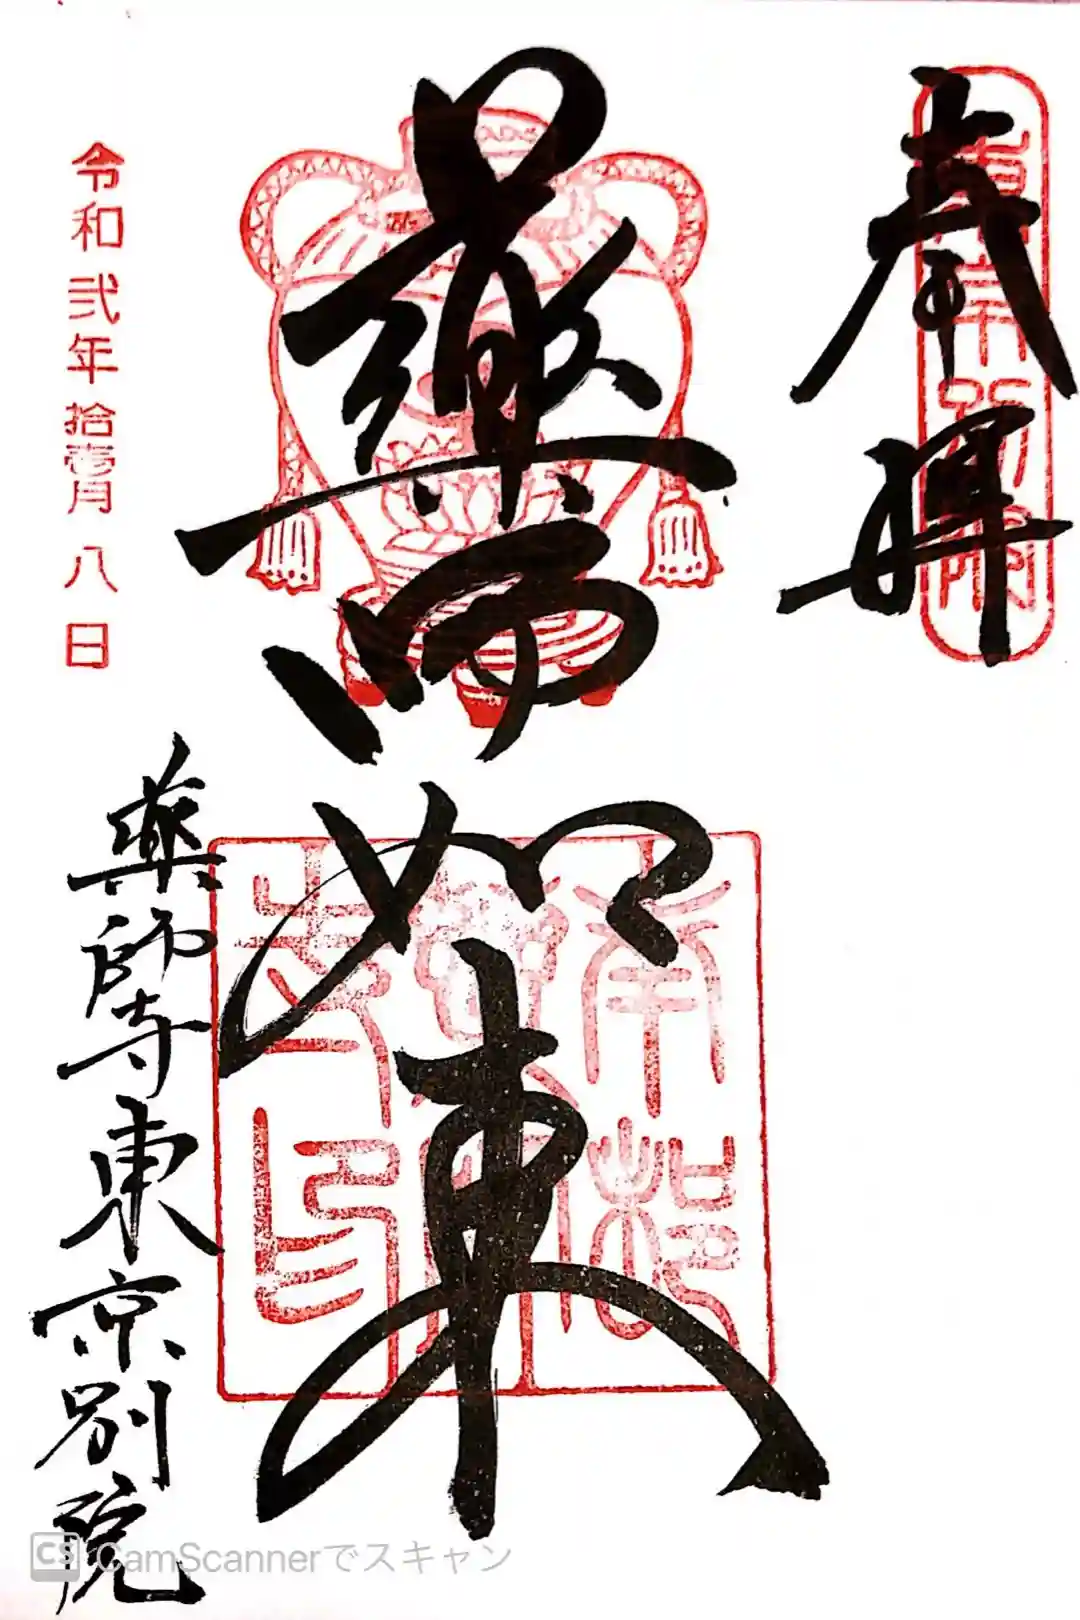 奉拝
薬師如来
令和弐年拾壹月八日
薬師寺東京別院
CamScannerでスキャン